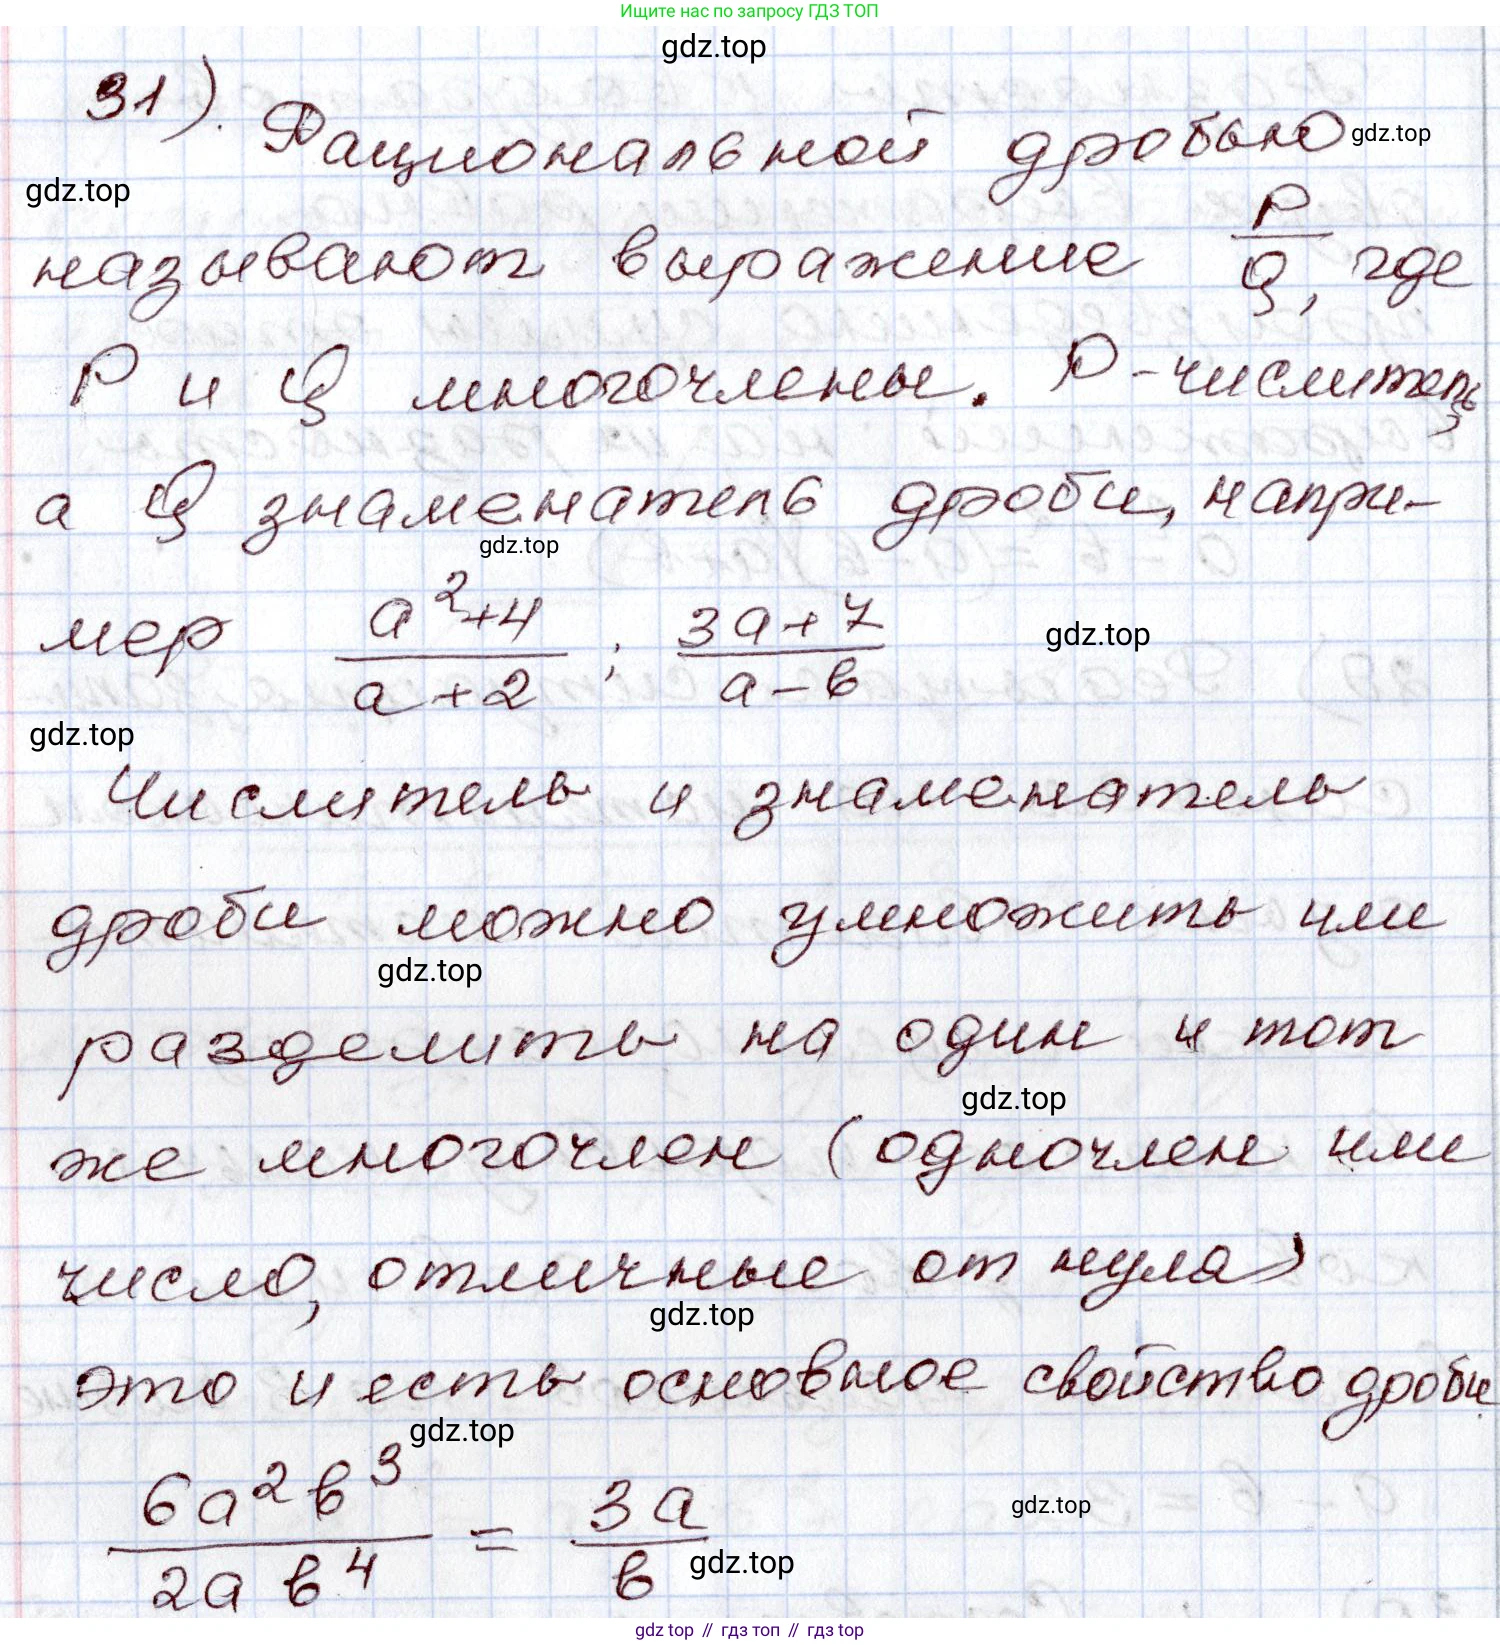 Ищите нас по запросу ГДЗ ТОП
gdz.top
31). Рациональной дробью
gdz.top
gdz.top
называют выражение P/Q, где
P и Q многочлены. P - числитель,
а Q знаменатель дроби, напри-
gdz.top
мер (a²+4)/(a+2) ; (3a+7)/(a-b)
gdz.top
gdz.top
Числитель и знаменатель
дроби можно умножить или
gdz.top
разделить на один и тот
gdz.top
же многочлен (одночлен или
число, отличные от нуля)
gdz.top
это и есть основное свойство дроби
gdz.top
6a²b³/2ab⁴ = 3a/b
gdz.top
gdz.top
gdz.top // гдз топ // гдз.top